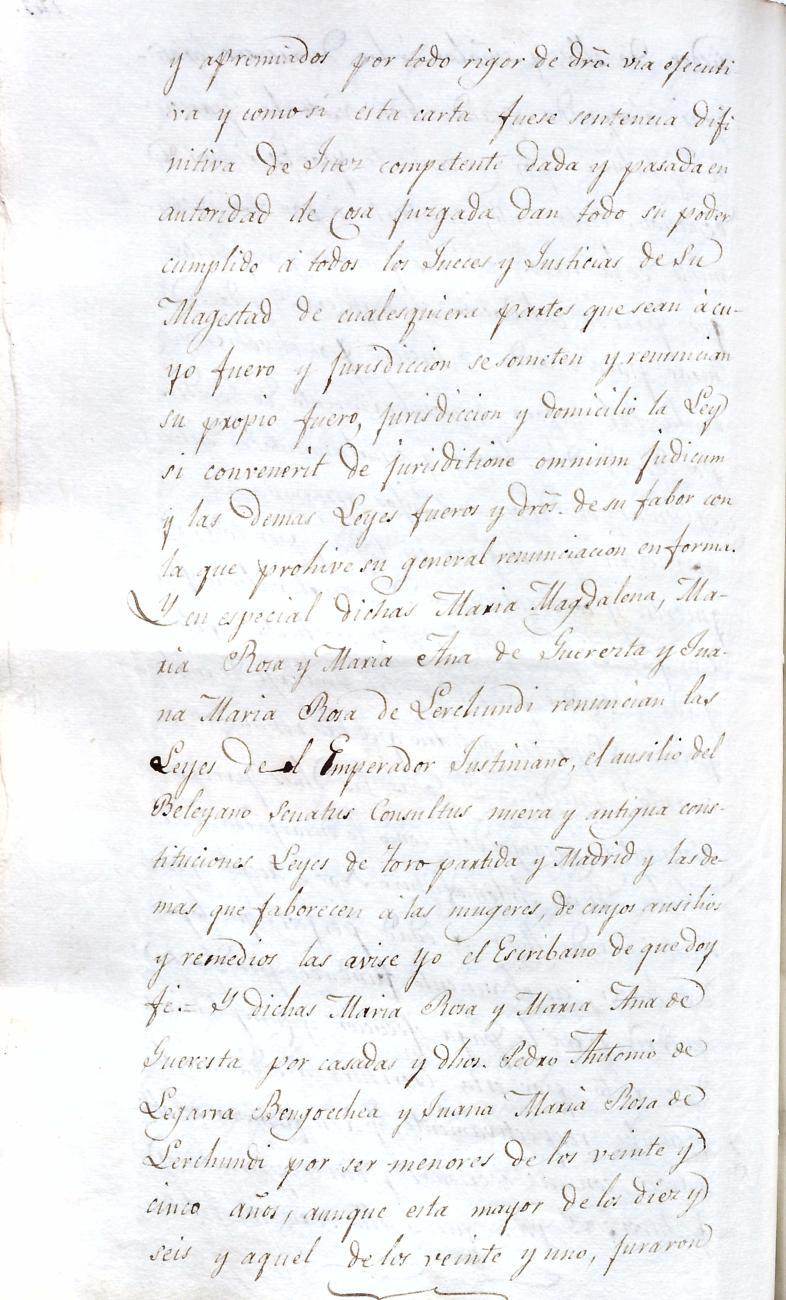 y apremiados por todo rigor de dro͠. via ejecuti
va y como si esta carta fuese sentencia difi
nitiva de Juez competente dada y pasada en
autoridad de cosa juzgada dan todo su poder
cumplido á todos los Jueces y Justicias de Su
Magestad de cualesquiera partes que sean à cu-
yo fuero y jurisdiccion se someten y renuncian
su propio fuero, jurisdiccion y domicilio la Ley
si convenerit de jurisditione omnium judicum
y las Demas Leyes fueros y dro͠s. de su fabor con
la que prohive su general renunciacion en forma.
Y en especial dichas Maria Magdalena, Ma-
ria Rosa y Maria Ana de Guerezta y Jua-
na Maria Rosa de Lerchundi renuncian las
Leyes de el Emperador Justiniano, el ausilio del
Beleyano Senatus Consultus nueva y antigua cons-
tituciones Leyes de toro partida y Madrid y las de-
mas que faborecen á las mugeres, de cuyos ausilios
y remedios las avise yo el Escribano de que doy
fé.= Y dichas Maria Rosa y Maria Ana de
Gueresta por casadas y dhos. Pedro Antonio de
Legarra Bengoechea y Juana Maria Rosa de
Lerchundi por ser menores de los veinte y
cinco años, aunque esta mayor de los diez y
seis y aquel de los veinte y uno, juraron